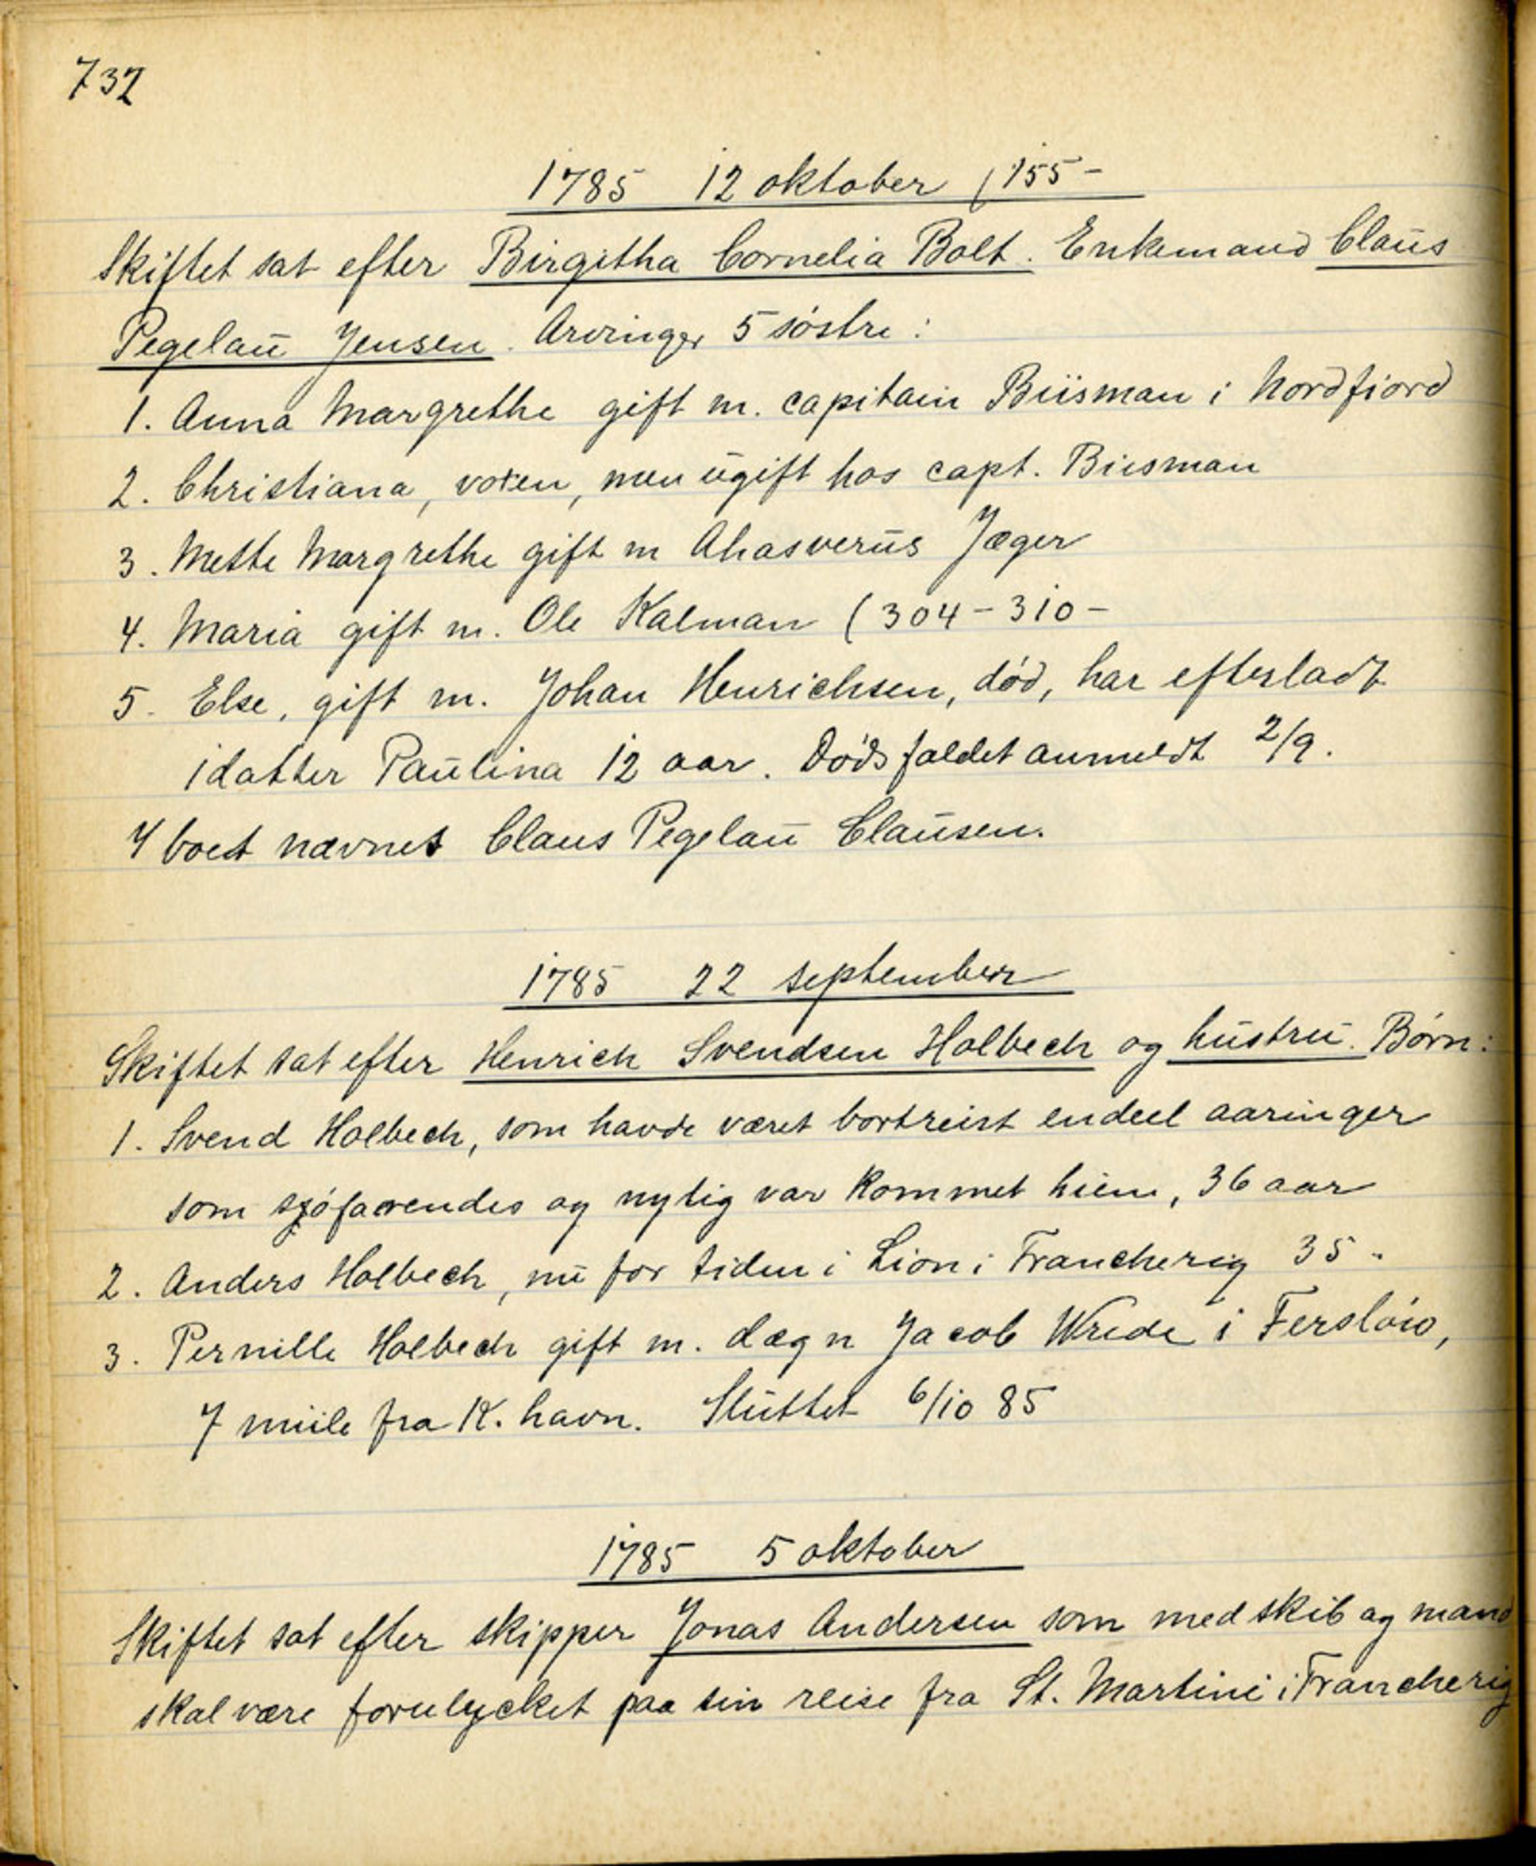 732
1785 12 oktober (155-
Skiftet sat efter Birgitha Cornelia Bolt. Enkemand Claus
Pegelau Jensen. Arvinger 5 søstre:
1. Anna Margrethe gift m. capitain Biisman i Nordfiord
2. Christiana, voxen, men ugift hos capt. Biisman
3. Mette Margrethe gift m Ahasverus Jæger
4. Maria gift m. Ole Kalman (304-310-
5. Else, gift m. Johan Henrichsen, død, har efterladt
1 datter Paulina 12 aar. Dødsfaldet anmeldt 2/9.
I boet nævnes Claus Pegelau Clausen.
1785 22 september
Skiftet sat efter Henrich Svendsen Holbech og hustru. Børn:
1. Svend Holbech, som havde været bortreist endeel aaringer
som sjøfarendes og nylig var kommet hiem, 36 aar
2. Anders Holbech, nu for tiden i Lion i Francherig 35 "
3. Pernille Holbech gift m. dægn Jacob Wrede i Fersløio,
7 miile fra K.havn. Sluttet 6/10 85
1785 5 oktober
Skiftet sat efter skipper Jonas Andersen som med skib og mand
skal være forulycket paa sin reise fra St. Martini i Francherig